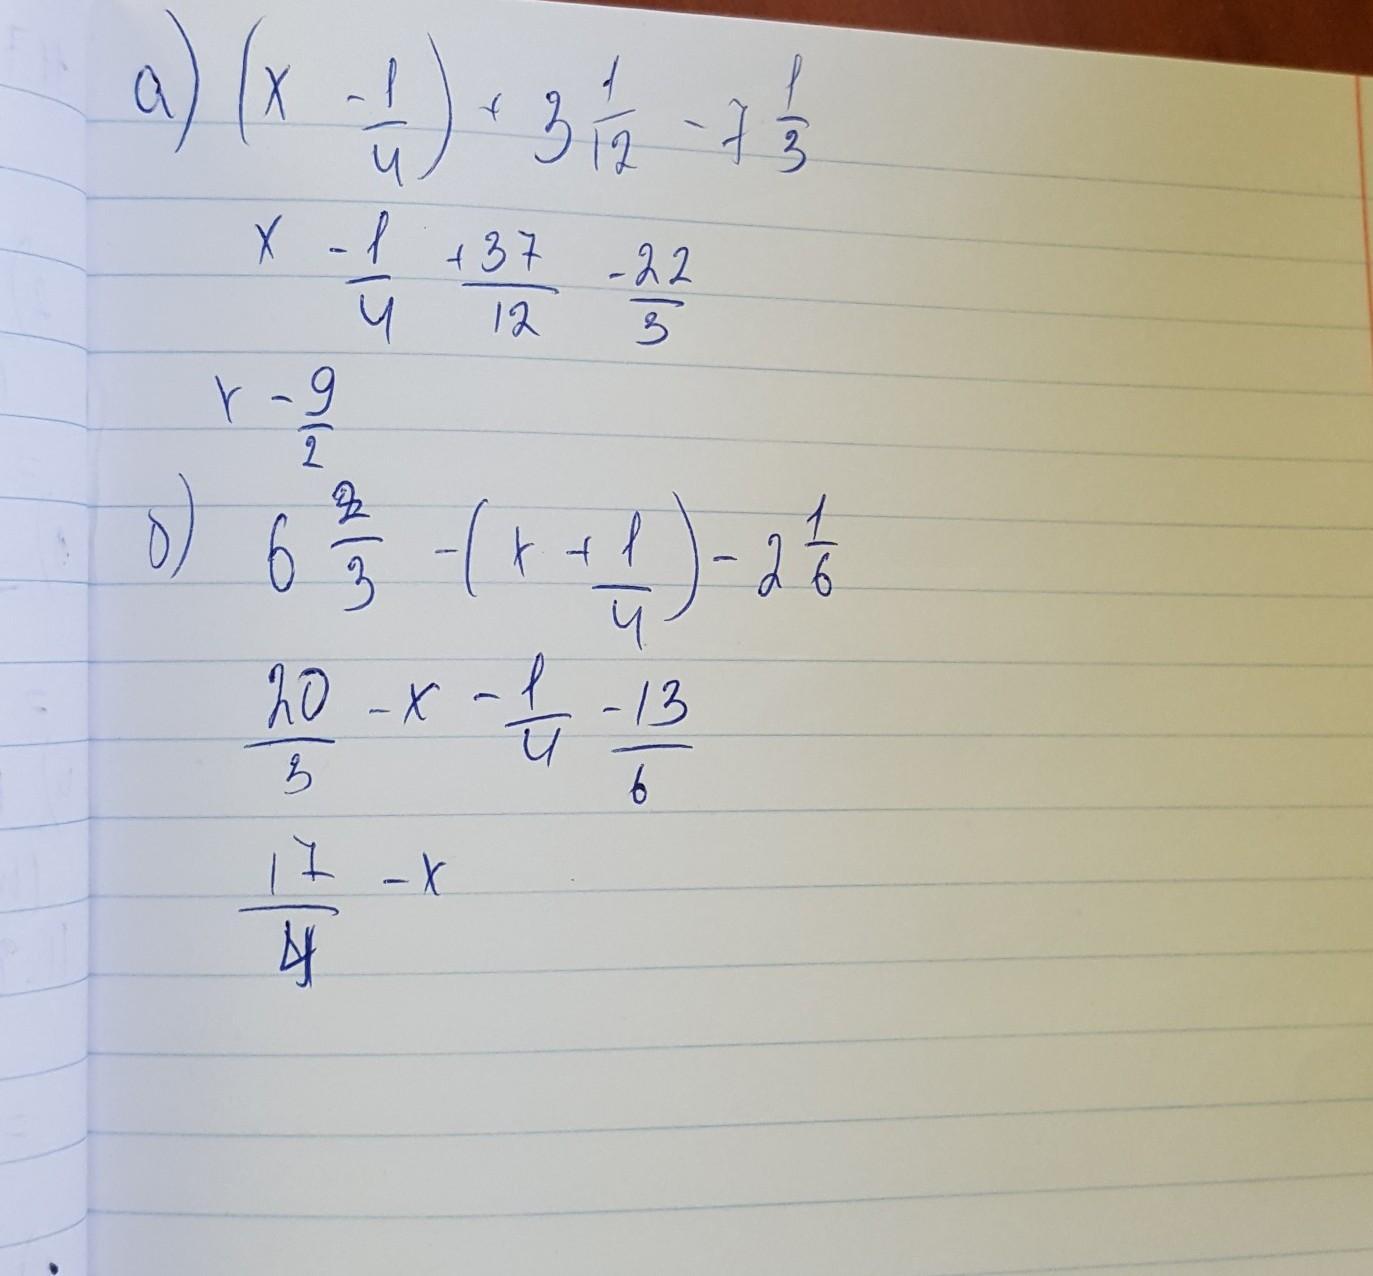 а) (x - 1/4) + 3 1/12 - 7 1/3
x - 1/4 + 37/12 - 22/3
x - 9/2
б) 6 2/3 - (x + 1/4) - 2 1/6
20/3 - x - 1/4 - 13/6
17/4 - x